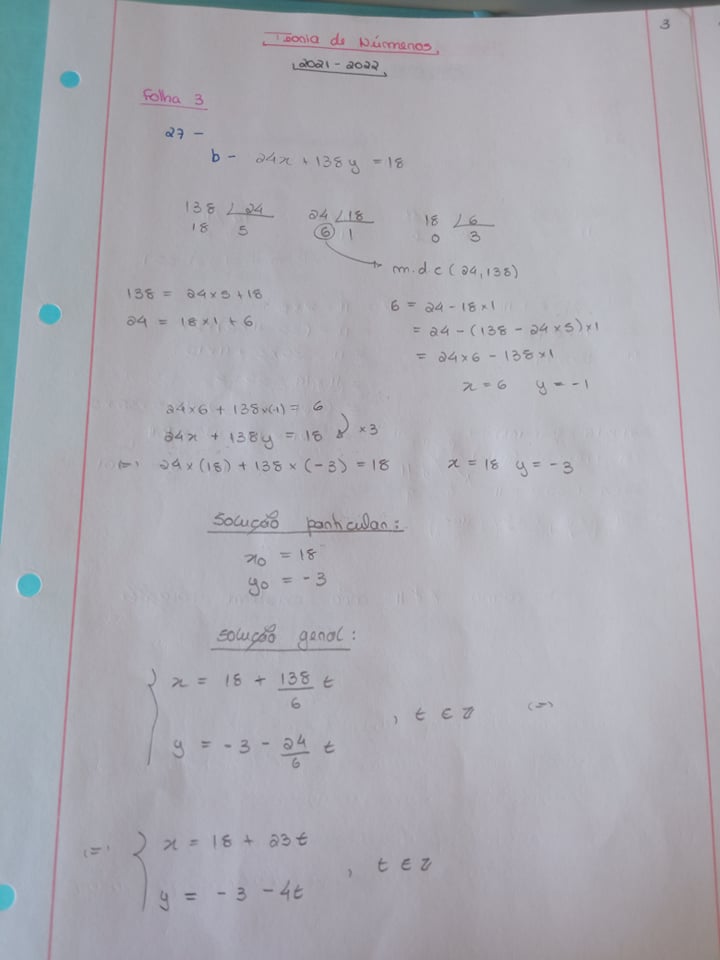 3
Teoria de Números
2021-2022
Folha 3
27 -
b - 24x + 138y = 18
138 24 24 18 18 6
18 5 6 1 0 3
m.d.c (24,138)
138 = 24x5+18
24 = 18x1 + 6
6 = 24 - 18x1
= 24 - (138 - 24x5)x1
= 24x6 - 138x1
x = 6 y = -1
24x6 + 138x(-1) = 6
24x + 138y = 18 x3
(=) 24x(18) + 138x(-3) = 18 x = 18 y = -3
Solução particular:
x0 = 18
y0 = -3
Solução geral:
x = 18 + 138/6 t
y = -3 - 24/6 t
, t ∈ Z (=)
(=) x = 18 + 23t
y = -3 - 4t
, t ∈ Z